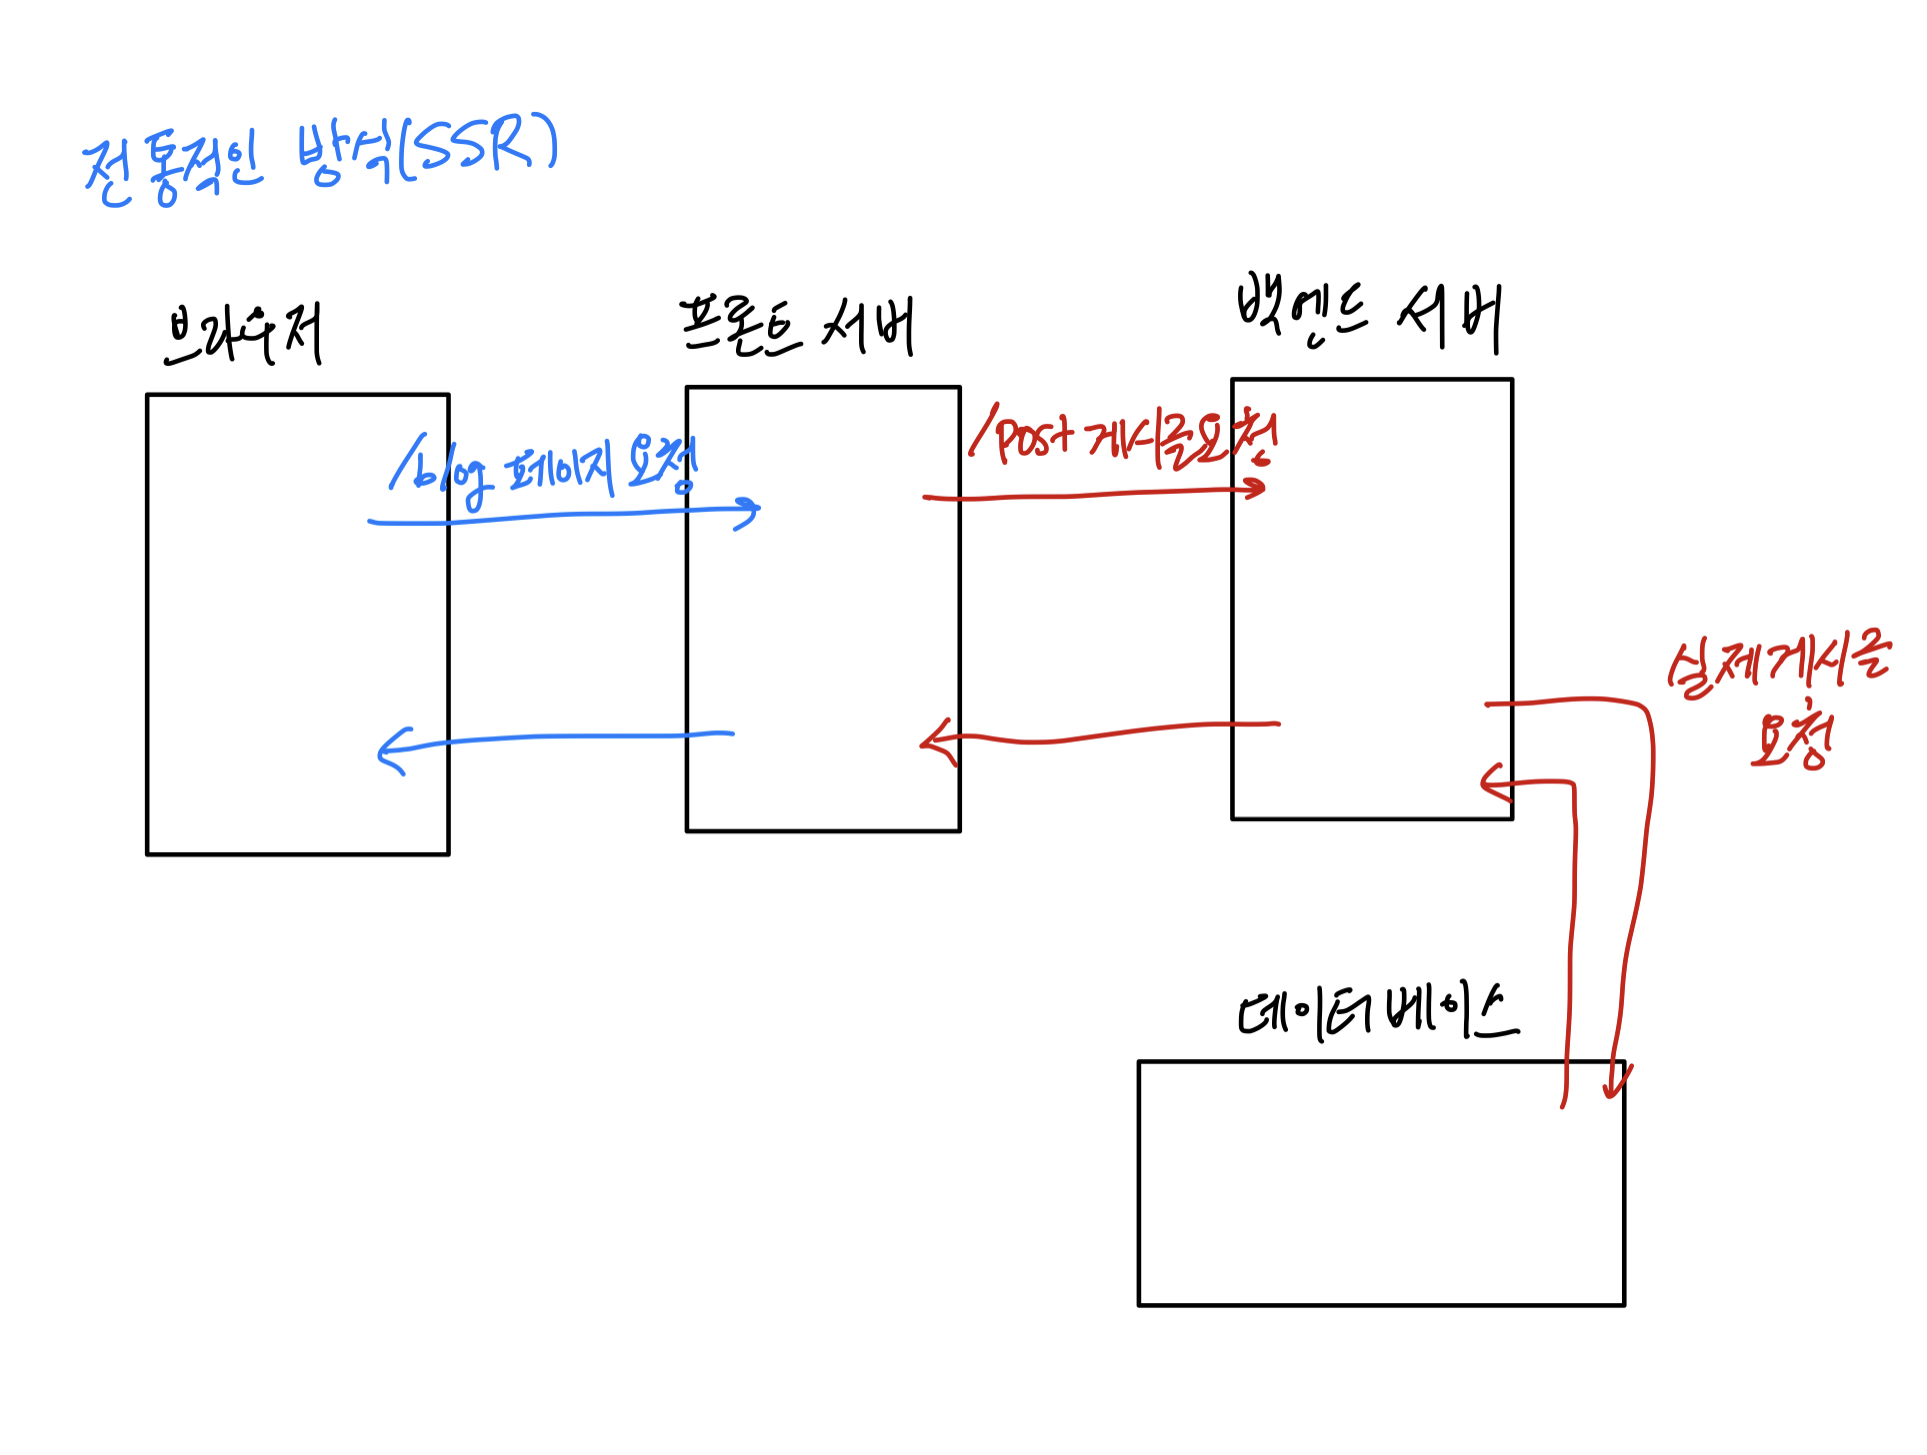 전통적인 방식(SSR)
브라우저
프론트 서버
백엔드 서버
/blog 페이지 요청
/post 게시글요청
실제게시글
요청
데이터 베이스